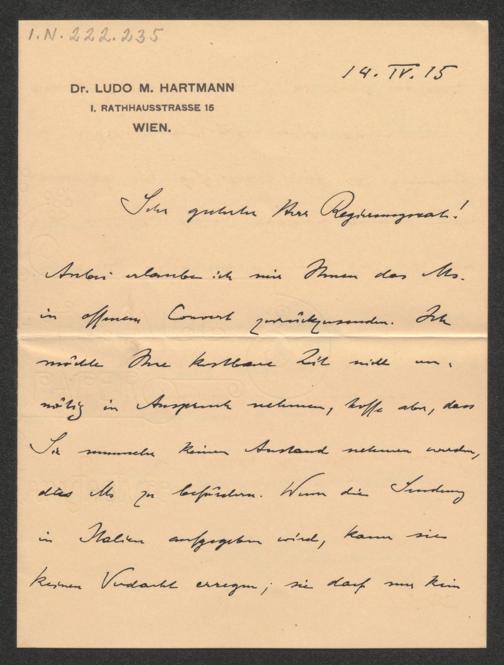 I.N. 222.235
14. IV. 15
Dr. LUDO M. HARTMANN
I. RATHHAUSSTRASSE 15
WIEN.
Sehr geehrter Herr Regierungsrath!
Anbei erlaube ich mir Ihnen das Ms.
in offenem Couvert zurückzusenden. Ich
möchte Ihre kostbare Zeit nicht un-
nötig in Anspruch nehmen, hoffe aber, dass
Sie nunmehr keinen Anstand nehmen werden,
dies Ms zu befördern. Wenn die Sendung
in Italien aufgegeben wird, kann sie
keinen Verdacht erregen; sie darf nur kein